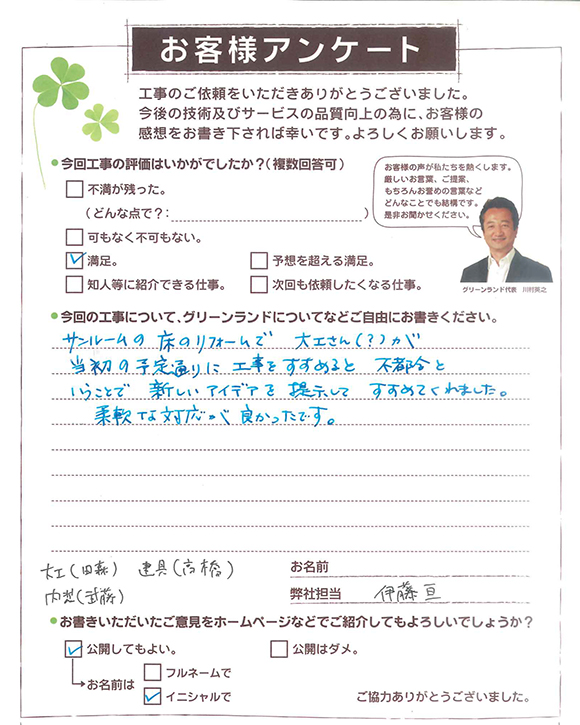 お客様アンケート
工事のご依頼をいただきありがとうございました。
今後の技術及びサービスの品質向上の為に、お客様の
感想をお書き下されば幸いです。よろしくお願いします。
●今回工事の評価はいかがでしたか?(複数回答可)
不満が残った。
(どんな点で?: )
可もなく不可もない。
満足。
予想を超える満足。
知人等に紹介できる仕事。
次回も依頼したくなる仕事。
お客様の声が私たちを熱くします。
厳しいお言葉、ご提案、
もちろんお誉めの言葉など
どんなことでも結構です。
是非お聞かせください。
グリーンランド代表 川村英之
●今回の工事について、グリーンランドについてなどご自由にお書きください。
サンルームの床のリフォームで 大工さん(?)が
当初の予定通りに工事をすすめると 不都合と
いうことで 新しいアイデアを 提示して すすめてくれました。
柔軟な対応が良かったです。
大工(田森) 建具(高橋)
内装(武藤)
お名前
弊社担当 伊藤亘
●お書きいただいたご意見をホームページなどでご紹介してもよろしいでしょうか?
公開してもよい。
公開はダメ。
お名前は
フルネームで
イニシャルで
ご協力ありがとうございました。